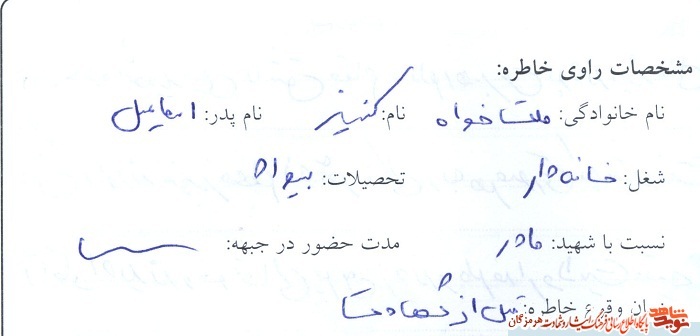 مشخصات راوی خاطره:
نام خانوادگی: ملتاخواه نام: کنیز نام پدر: اسماعیل
شغل: خانه دار تحصیلات: بیسواد
نسبت با شهید: مادر مدت حضور در جبهه:
زمان وقوع خاطره: قبل از شهادت
نوید شاهد
پایگاه اطلاع رسانی فرهنگ ایثار و شهادت هرمزگان